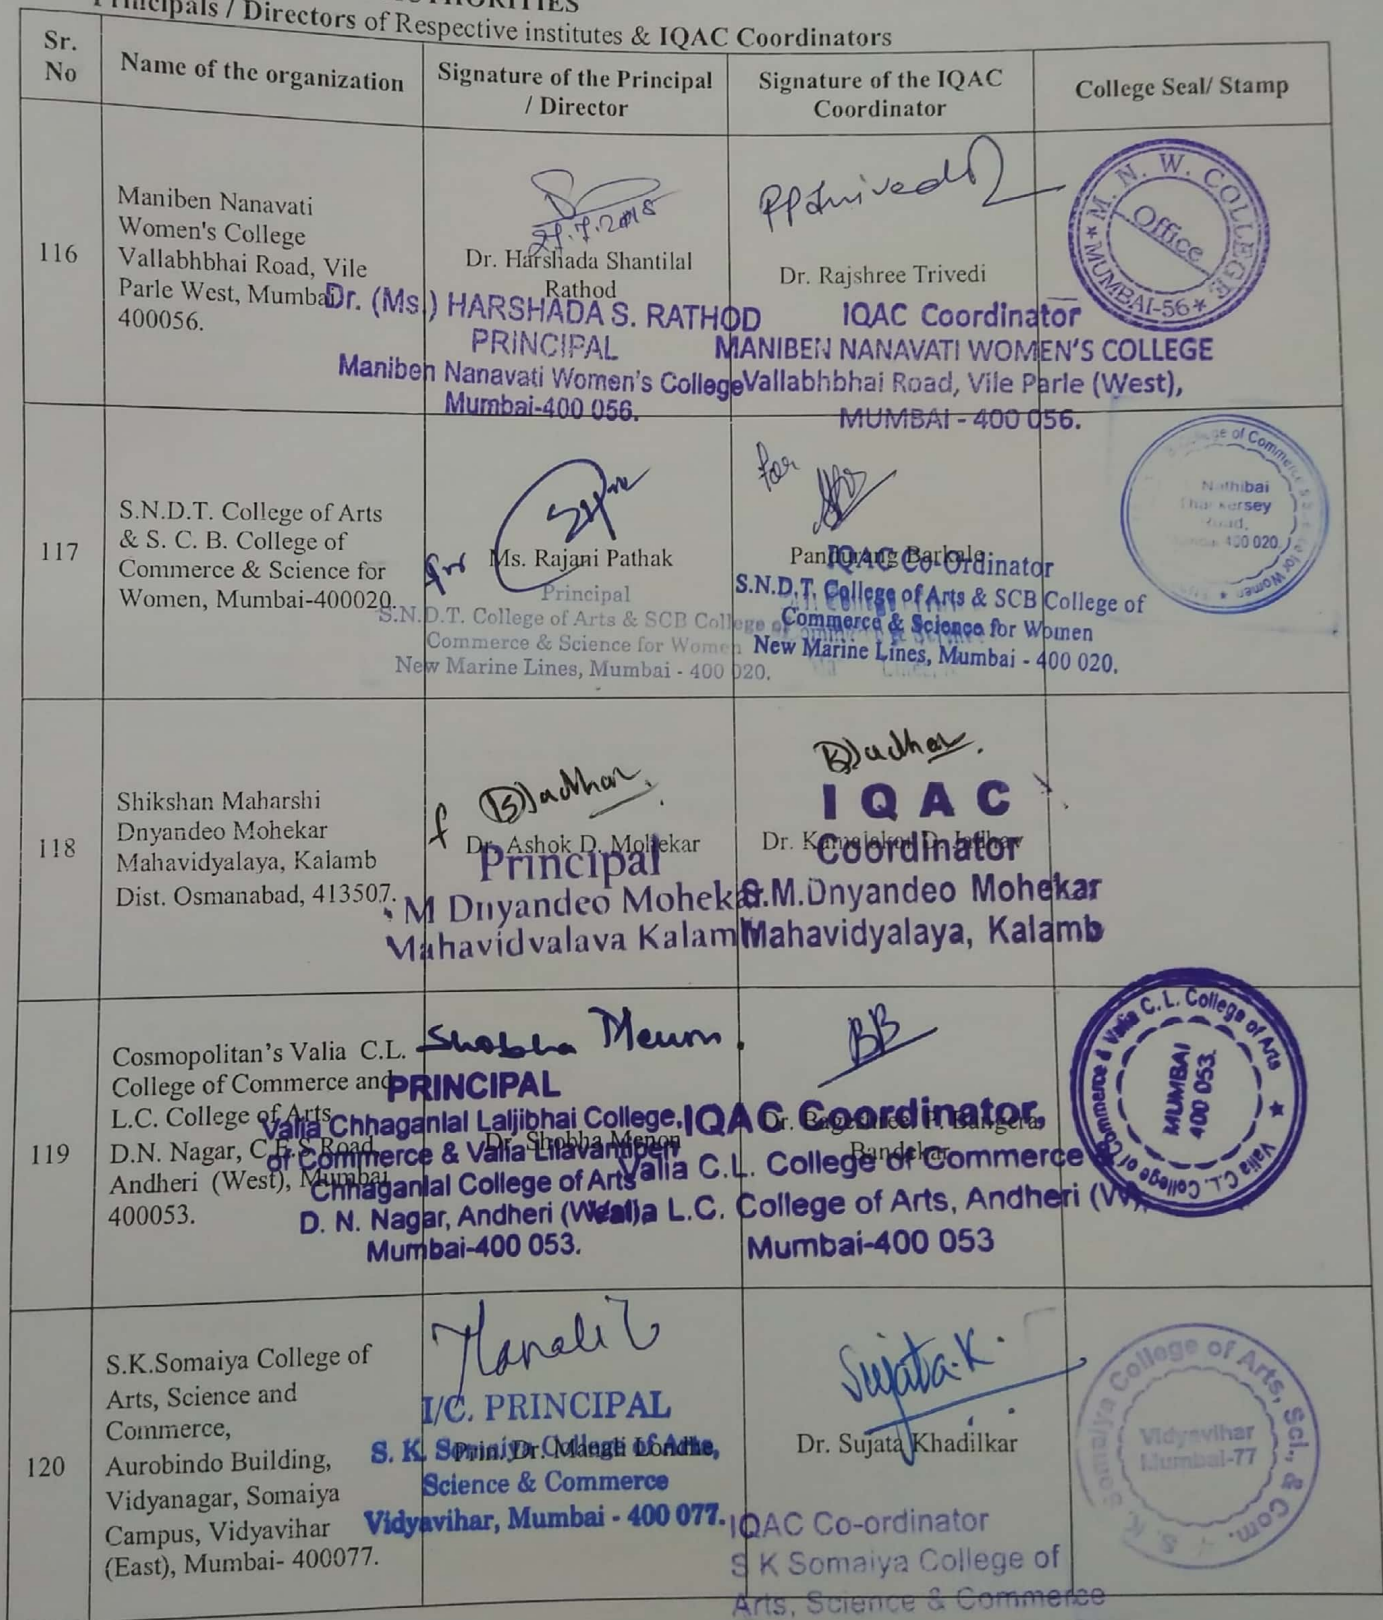 Principals / Directors of Respective institutes & IQAC Coordinators
Sr. No
Name of the organization
Signature of the Principal / Director
Signature of the IQAC Coordinator
College Seal/ Stamp
116
Maniben Nanavati
Women's College
Vallabhbhai Road, Vile
Parle West, Mumbai
400056.
27.7.2018
Dr. Harshada Shantilal
Rathod
Dr. (Ms.) HARSHADA S. RATHOD
PRINCIPAL
Maniben Nanavati Women's College
Mumbai-400 056.
PPTrivedi
Dr. Rajshree Trivedi
IQAC Coordinator
MANIBEN NANAVATI WOMEN'S COLLEGE
Vallabhbhai Road, Vile Parle (West),
MUMBAI - 400 056.
M. N. W. COLLEGE
Office
★ MUMBAI-56 ★
117
S.N.D.T. College of Arts
& S. C. B. College of
Commerce & Science for
Women, Mumbai-400020.
for
Ms. Rajani Pathak
Principal
S.N.D.T. College of Arts & SCB College of
Commerce & Science for Women
New Marine Lines, Mumbai - 400 020.
for
Pandurang Barkale
IQAC Co-Ordinator
S.N.D.T. College of Arts & SCB College of
Commerce & Science for Women
New Marine Lines, Mumbai - 400 020.
of Commerce
Nathibai
Thakersey
Road,
400 020.
for Women
118
Shikshan Maharshi
Dnyandeo Mohekar
Mahavidyalaya, Kalamb
Dist. Osmanabad, 413507.
Jadhav.
Dr. Ashok D. Mohekar
Principal
M Dnyandeo Mohekar
Mahavidyalaya Kalam
Jadhav.
Dr. Kamalakar D. Jadhav
IQAC
Coordinator
S.M.Dnyandeo Mohekar
Mahavidyalaya, Kalamb
119
Cosmopolitan's Valia C.L.
College of Commerce and
L.C. College of Arts
D.N. Nagar, C.E.S Road,
Andheri (West), Mumbai
400053.
Shobha Menon.
Dr. Shobha Menon
PRINCIPAL
Valia Chhaganlal Laljibhai College,
of Commerce & Valia Lilavantiben
Chhaganlal College of Arts
D. N. Nagar, Andheri (West)
Mumbai-400 053.
BB
Dr. Bageshree P. Bangera
Bandekar
IQAC Coordinator,
Valia C.L. College of Commerce &
Valia L.C. College of Arts, Andheri (W),
Mumbai-400 053
College of Commerce & Valia C. L. College of Arts ★ Valia C.L. College
MUMBAI
400 053.
120
S.K.Somaiya College of
Arts, Science and
Commerce,
Aurobindo Building,
Vidyanagar, Somaiya
Campus, Vidyavihar
(East), Mumbai- 400077.
Manali
Prin. Dr. Manali Londhe
I/C. PRINCIPAL
S. K. Somaiya College of Arts,
Science & Commerce
Vidyavihar, Mumbai - 400 077.
Sujata.K.
Dr. Sujata Khadilkar
IQAC Co-ordinator
S K Somaiya College of
Arts, Science & Commerce
S. K. Somaiya College of Arts, Sci., & Com.
Vidyavihar
Mumbai-77